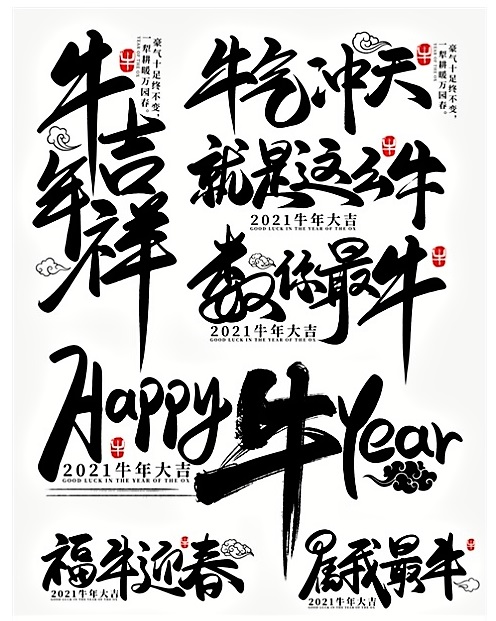 牛年吉祥
豪气十足终不变，
一犁耕暖万园春。
牛
牛气冲天
牛
豪气十足终不变，
一犁耕暖万园春。
就是这么牛
牛
2021牛年大吉
GOOD LUCK IN THE YEAR OF THE OX
数你最牛
牛
2021牛年大吉
GOOD LUCK IN THE YEAR OF THE OX
Happy 牛 Year
牛
2021牛年大吉
GOOD LUCK IN THE YEAR OF THE OX
福牛迎春
牛
2021牛年大吉
GOOD LUCK IN THE YEAR OF THE OX
属我最牛
牛
2021牛年大吉
GOOD LUCK IN THE YEAR OF THE OX